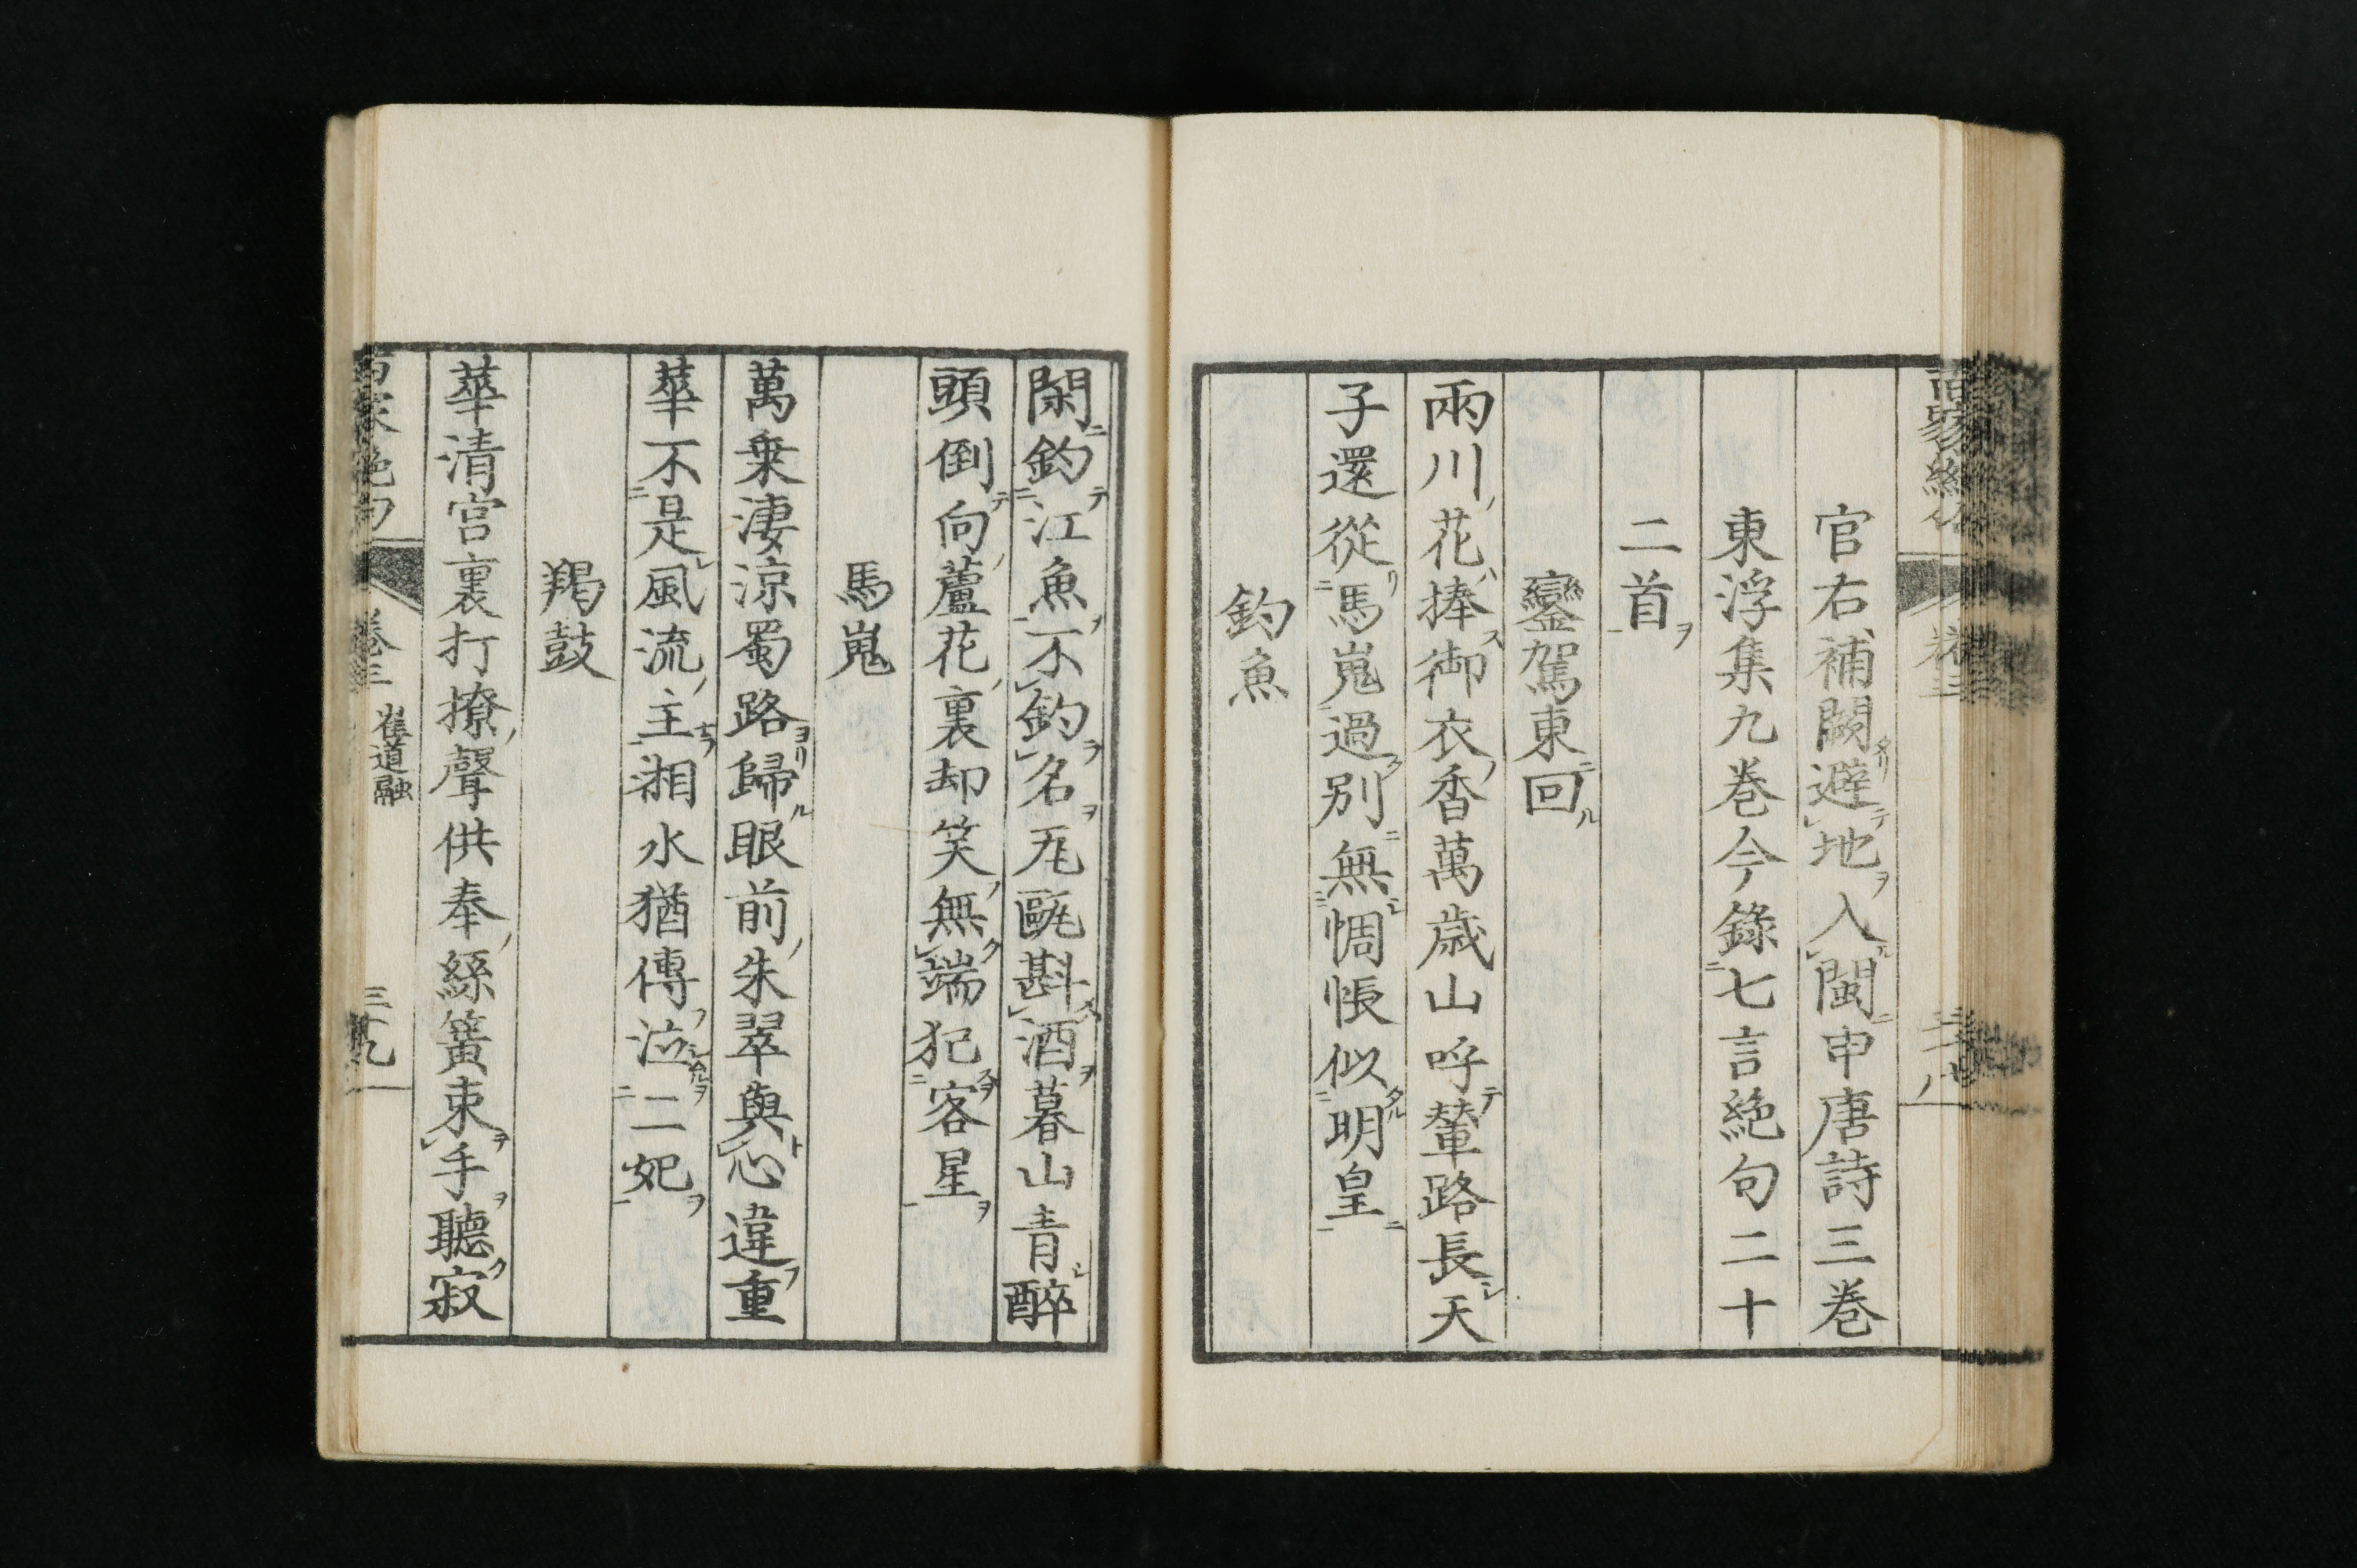 官右補闕避地入閩申唐詩三巻
東浮集九巻今錄七言絶句二十
二首
鑾駕東回
兩川花捧御衣香萬歳山呼輦路長天
子還從馬嵬過別無惆悵似明皇
釣魚
閑釣江魚不釣名瓦甌斟酒暮山青醉
頭倒向蘆花裏却笑無端犯客星
馬嵬
萬乗淒涼蜀路歸眼前朱翠與心違重
華不是風流主湘水猶傳泣二妃
羯鼓
華清宮裏打撩聲供奉絲簧束手聽寂
卷三
崔道融